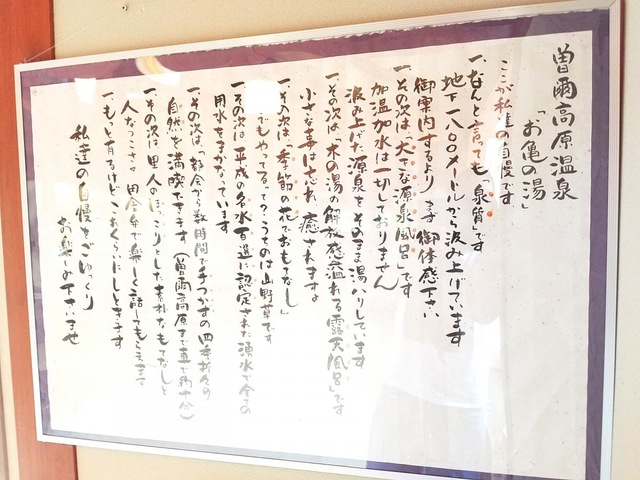 曽爾高原温泉
「お亀の湯」
ここが私達の自慢です
一、なんと言っても「泉質」です
地下一八〇〇メートルから汲み上げています
御案内するより まず御体感下さい
一、その次は、「大きな源泉風呂」です
加温加水は一切しておりません
汲み上げた源泉をそのまま湯ハリしています
一、その次は、「木の湯の解放感溢れる露天風呂」です
小さな事は忘れ 癒されますよ
一、その次は、「季節の花でおもてなし」
でもやってるって?うちのは山野草です
一、その次は 平成の名水百選に認定された湧水で全ての
用水をまかなっています
一、その次は、都会から数時間で手つかずの四季折々の
自然を満喫できます(曽爾高原まで車で約十分)
一、その次は 里人のほっこりとした素朴なもてなしと
人なつっこさ 田舎弁で楽しく話してもらえます
一、もっと有るけどこれくらいにしときます
私達の自慢をごゆっくり
お楽しみ下さいませ